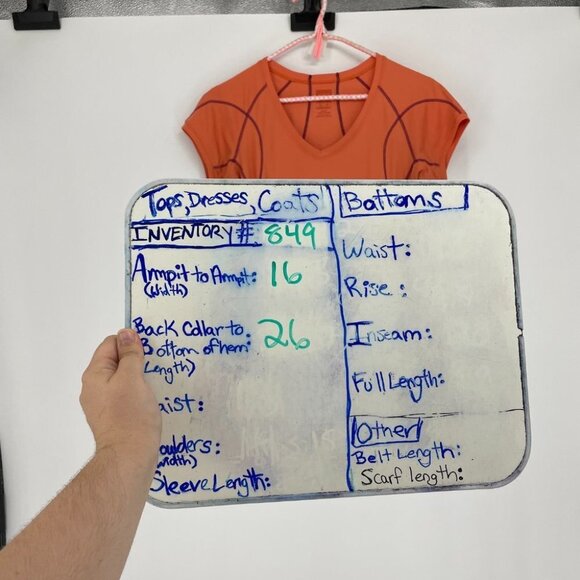 Tops, Dresses, Coats
INVENTORY #: 849
Armpit to Armpit: 16
(Width)
Back Collar to 26
Bottom of hem:
Length)
aist:
oulders:
width)
Sleeve Length:
Bottoms
Waist:
Rise:
Inseam:
Full Length:
Other
Belt Length:
Scarf length: